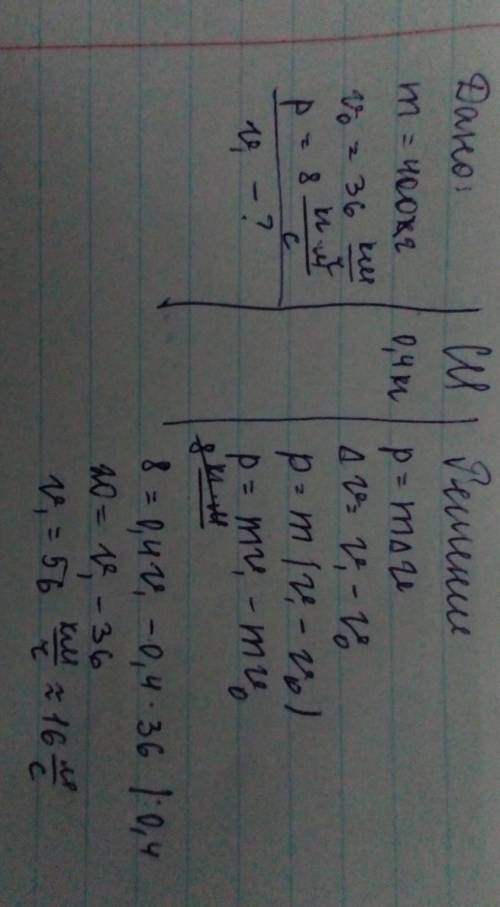 Дано:
m = 400 г
v₀ = 36 км/ч
p = 8 кг·м/с
v₁ - ?
СИ
0,4 кг
Решение
p = mΔv
Δv = v₁ - v₀
p = m(v₁ - v₀)
p = mv₁ - mv₀
8 = 0,4v₁ - 0,4·36 |:0,4
20 = v₁ - 36
v₁ = 56 км/ч ≈ 16 м/с